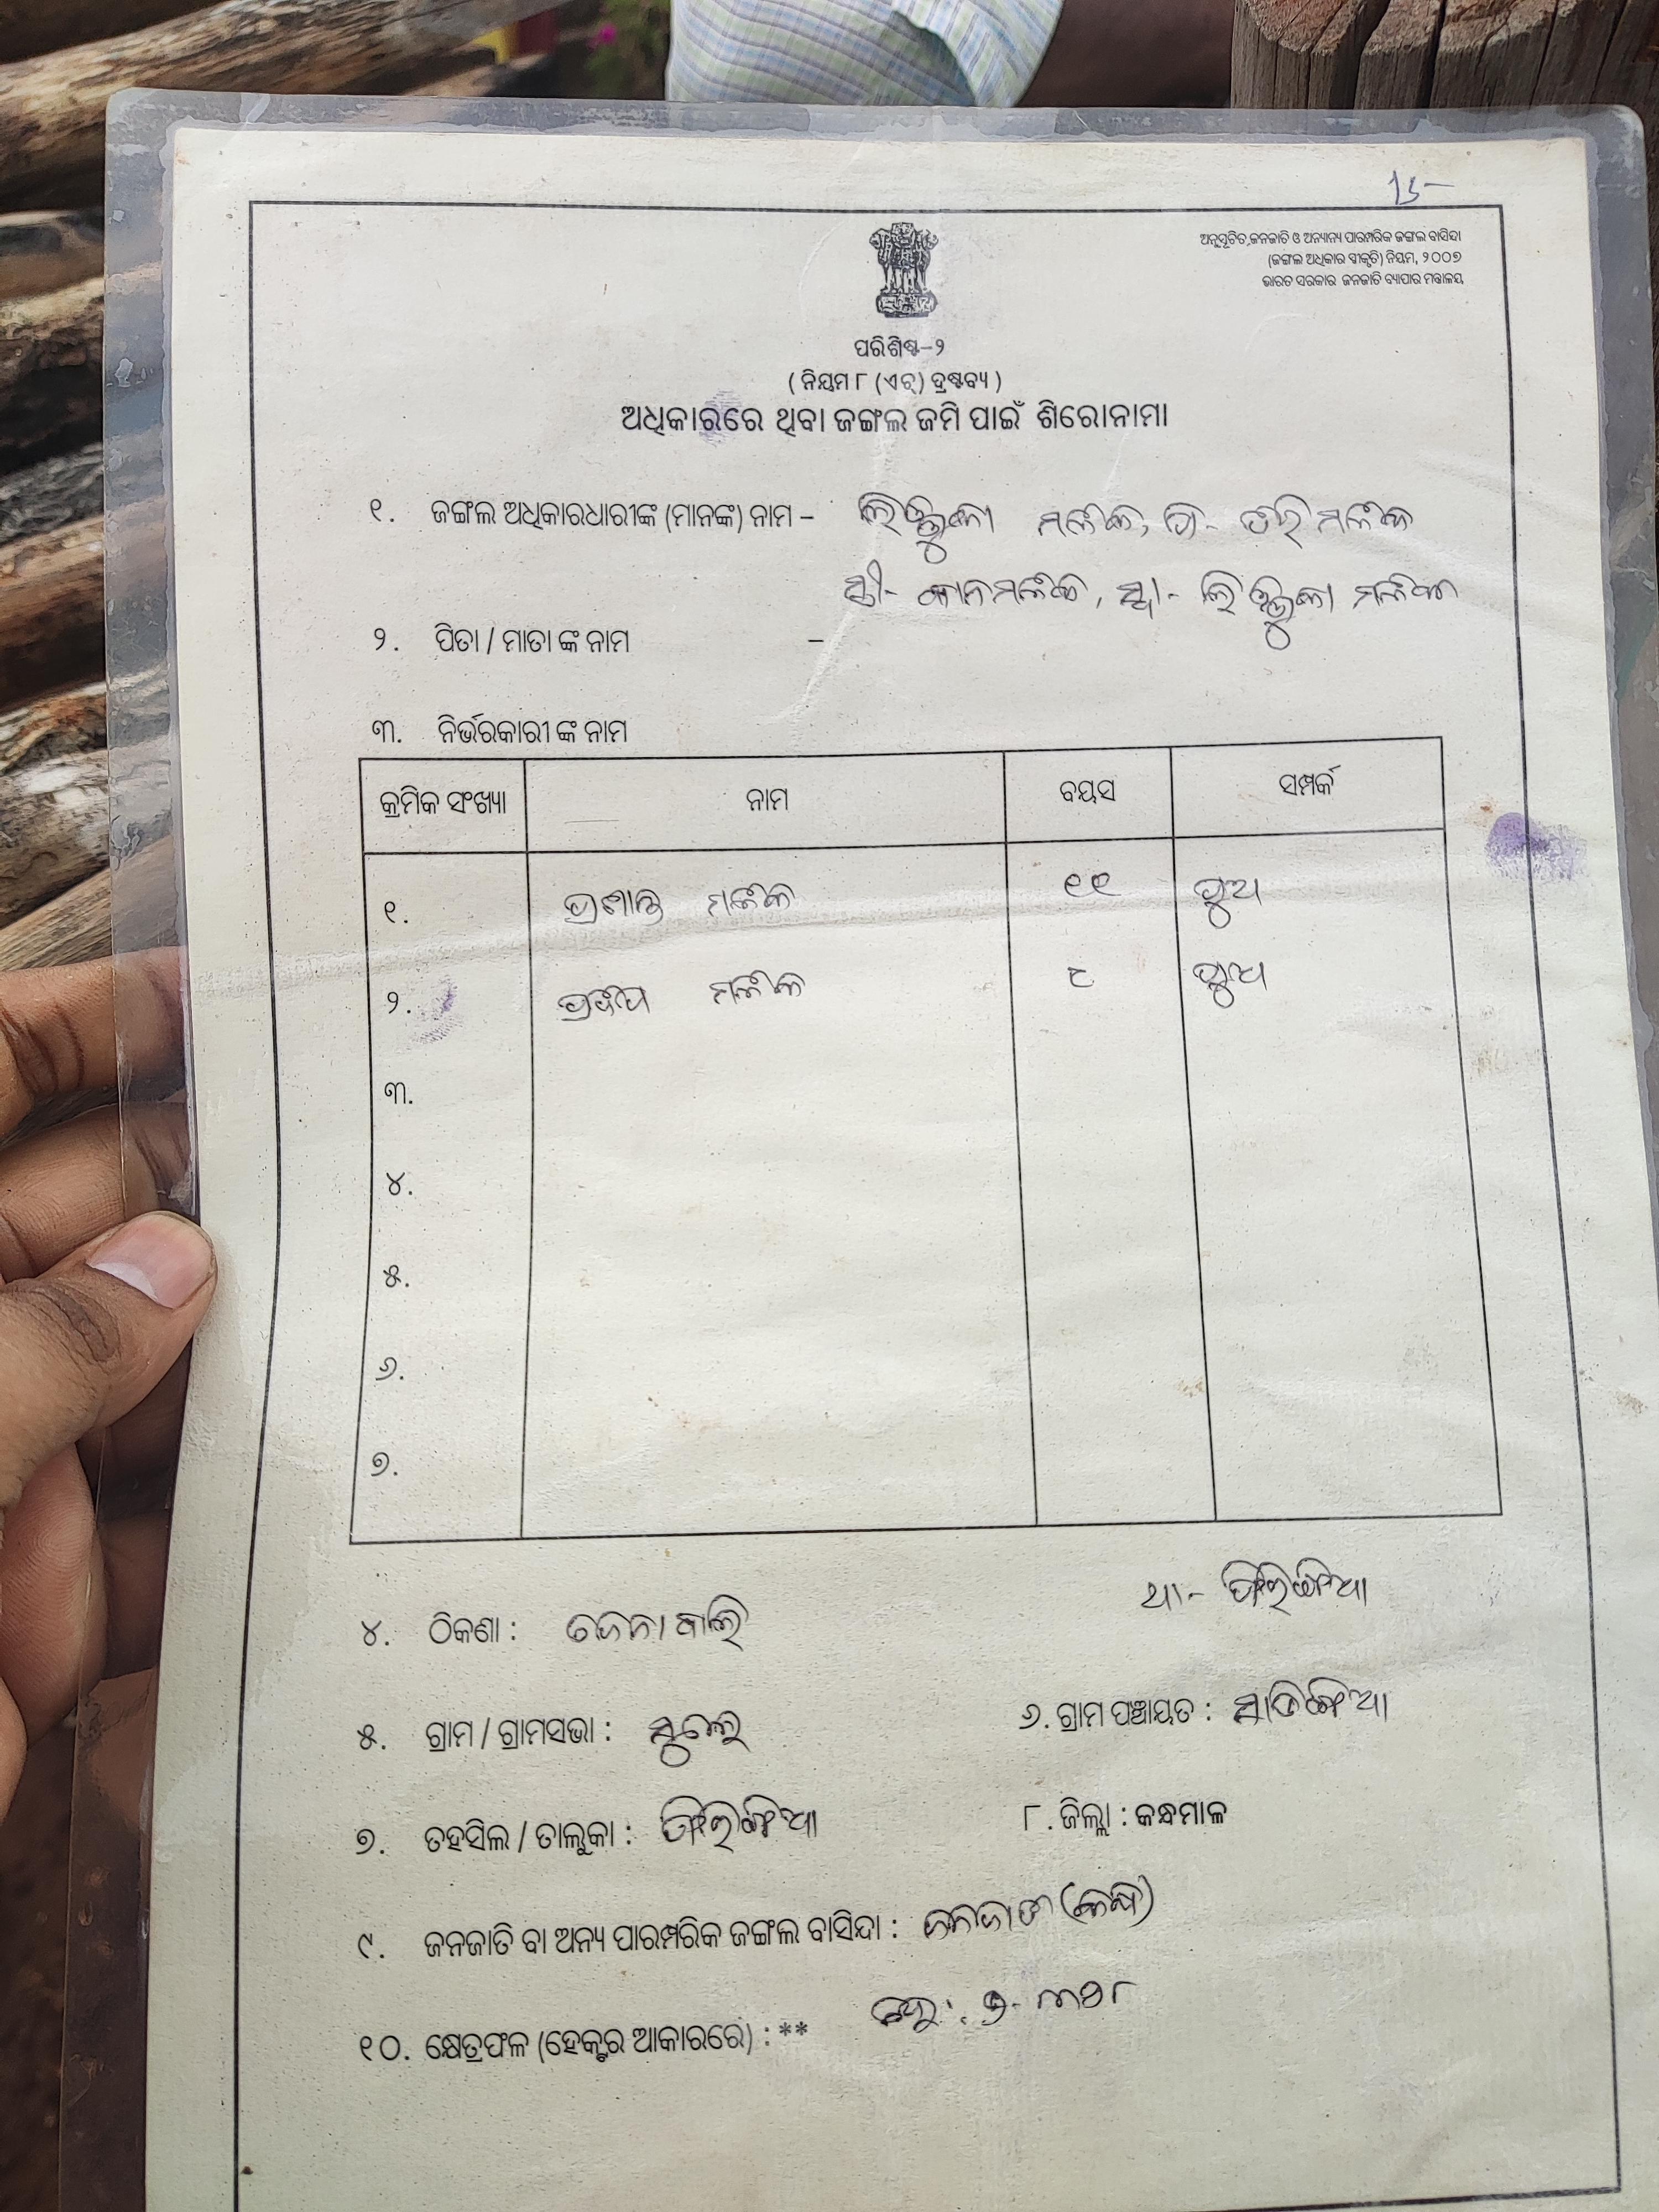 15-
ଅନୁସୂଚିତ ଜନଜାତି ଓ ଅନ୍ୟାନ୍ୟ ପାରମ୍ପରିକ ଜଙ୍ଗଲ ବାସିନ୍ଦା
(ଜଙ୍ଗଲ ଅଧିକାର ସ୍ୱୀକୃତି) ନିୟମ, ୨୦୦୭
ଭାରତ ସରକାର ଜନଜାତି ବ୍ୟାପାର ମନ୍ତ୍ରାଳୟ
ପରିଶିଷ୍ଟ-୨
( ନିୟମ ୮ (ଏଚ୍) ଦ୍ରଷ୍ଟବ୍ୟ )
ଅଧିକାରରେ ଥିବା ଜଙ୍ଗଲ ଜମି ପାଇଁ ଶିରୋନାମା
୧. ଜଙ୍ଗଲ ଅଧିକାରଧାରୀଙ୍କ (ମାନଙ୍କ) ନାମ - ମଲିକ, ପି- ମଲିକ
ସ୍ତ୍ରୀ- ମଲିକ, ସ୍ୱା- ମଲିକ
୨. ପିତା / ମାତା ଙ୍କ ନାମ -
୩. ନିର୍ଭରକାରୀ ଙ୍କ ନାମ
କ୍ରମିକ ସଂଖ୍ୟା ନାମ ବୟସ ସମ୍ପର୍କ
୧. ପ୍ରଶାନ୍ତ ମଲିକ ୧୧ ପୁଅ
୨. ମଲିକ ୮ ପୁଅ
୩.
୪.
୫.
୬.
୭.
ଥା- ଫିରିଙ୍ଗିଆ
୪. ଠିକଣା :
୫. ଗ୍ରାମ / ଗ୍ରାମସଭା : ୬. ଗ୍ରାମ ପଞ୍ଚାୟତ :
୭. ତହସିଲ / ତାଲୁକା : ଫିରିଙ୍ଗିଆ ୮. ଜିଲ୍ଲା : କନ୍ଧମାଳ
୯. ଜନଜାତି ବା ଅନ୍ୟ ପାରମ୍ପରିକ ଜଙ୍ଗଲ ବାସିନ୍ଦା : ଜନଜାତି (କନ୍ଧ)
୧୦. କ୍ଷେତ୍ରଫଳ (ହେକ୍ଟର ଆକାରରେ) : **